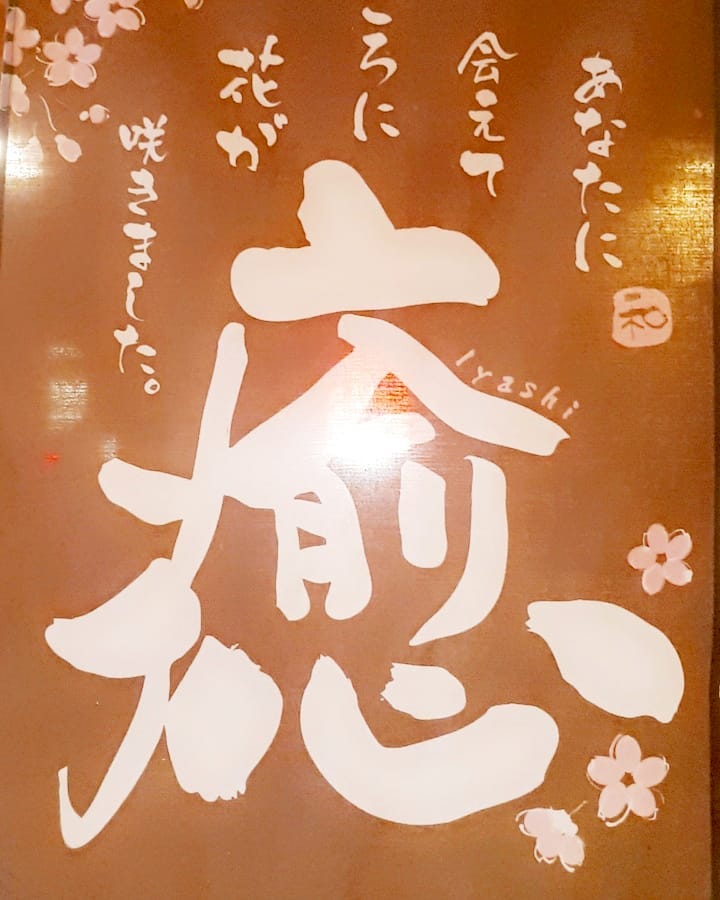 あなたに
会えて
ころに
花が
咲きました。
癒
Iyashi